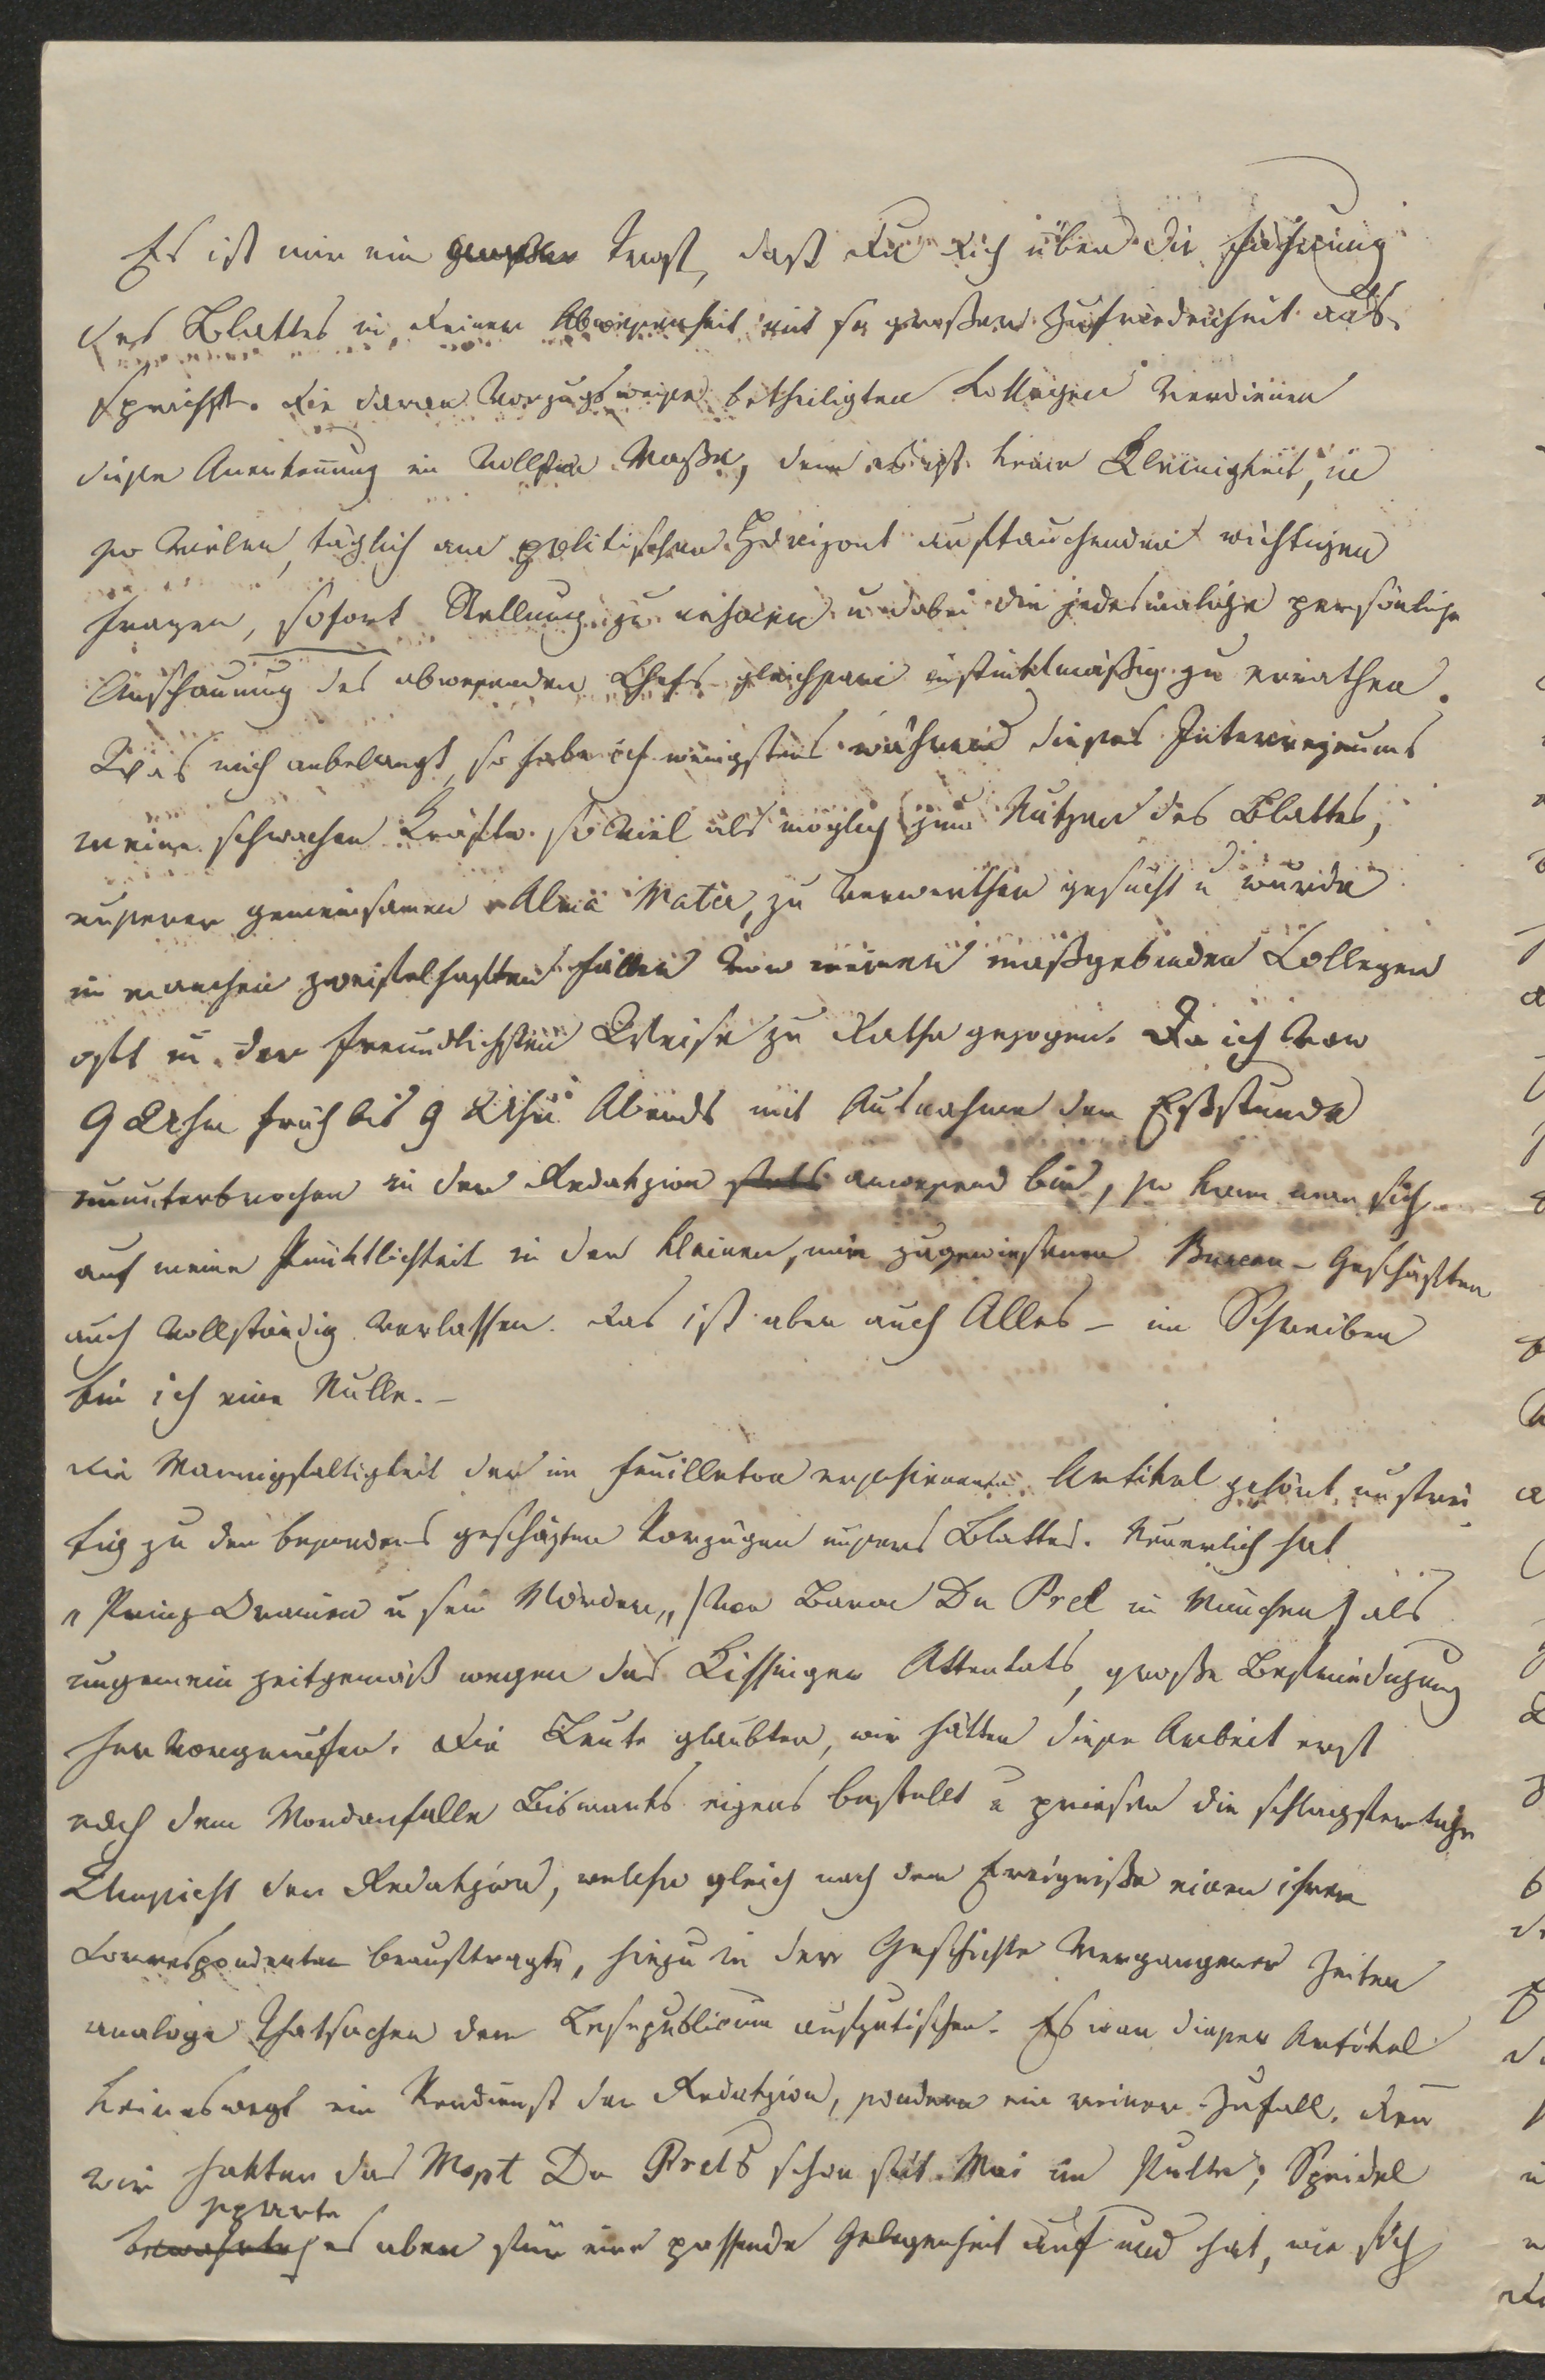 Es ist mir ein großer Trost, daß Du Dich über die Führung
des Blattes in Deiner Abwesenheit mit so großer Zufriedenheit aus-
sprichst. Die daran vorzugsweise betheiligten Kollegen verdienen
diese Anerkeñung im vollsten Maße, denn es ist keine Kleinigkeit, in
so vielen, täglich am politischen Horizont auftauchenden wichtigen
Fragen, sofort Stellung zu nehmen u dabei die jedesmalige persönliche
Anschauung des abwesenden Chefs gleichsam instinktmäßig zu errathen.
Was mich anbelangt, so habe ich wenigstens während dieses Interregnums
meine schwachen Kräfte so viel als möglich zum Nutzen des Blattes,
unserer gemeinsamen Alma Mater, zu verwerthen gesucht u wurde
in manchen zweifelhaften Fällen von meinen maßgebenden Collegen
oft in der freundlichsten Weise zu Rathe gezogen. Da ich von
9 Uhr früh bis 9 Uhr Abends mit Ausnahme der Eßstunde
ununterbrochen in der Redakzion stets anwesend bin, so kann man sich
auf meine Pünktlichkeit in den kleinen, mir zugewiesenen Bureau-Geschäften
auch vollständig verlassen. Das ist aber auch Alles – im Schreiben
bin ich eine Nulle. –
Die Mannigfaltigkeit der im Feuilleton erschienenen Artikel gehört unstrei-
tig zu den besonders geschäzten Vorzügen unsers Blattes. Neuerlich hat
„Prinz Oranien u sein Mörder„ /von Baron Du Prel in München/ als
ungemein zeitgemäß wegen des Kissinger Attentats, große Befriedigung
hervorgerufen. Die Leute glaubten, wir hätten diese Arbeit erst
nach dem Mordanfalle Bismarks eigens bestellt u priesen die schlagfertige
Umsicht der Redakzion, welche gleich nach dem Ereigniße einen ihrer
Correspondenten beauftragte, hiezu in der Geschichte vergangener Zeiten
analoge Thatsachen dem Lesepublicum aufzutischen. Es war dieser Artikel
keineswegs ein Verdienst der Redakzion, sondern ein reiner Zufall. Deñ
wir hatten das Mspt Du Prels schon seit Mai im Pulte; Speidel
sparte
bewahrte es aber für eine passende Gelegenheit auf und hat, wie sich